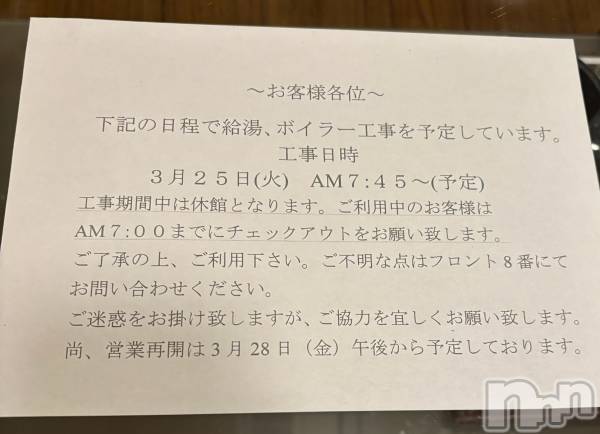 ～お客様各位～
下記の日程で給湯、ボイラー工事を予定しています。
工事日時
３月２５日(火)　AM７:４５～(予定)
工事期間中は休館となります。ご利用中のお客様は
AM７:００までにチェックアウトをお願い致します。
ご了承の上、ご利用下さい。ご不明な点はフロント８番にて
お問い合わせください。
ご迷惑をお掛け致しますが、ご協力を宜しくお願い致します。
尚、営業再開は３月28日（金）午後から予定しております。